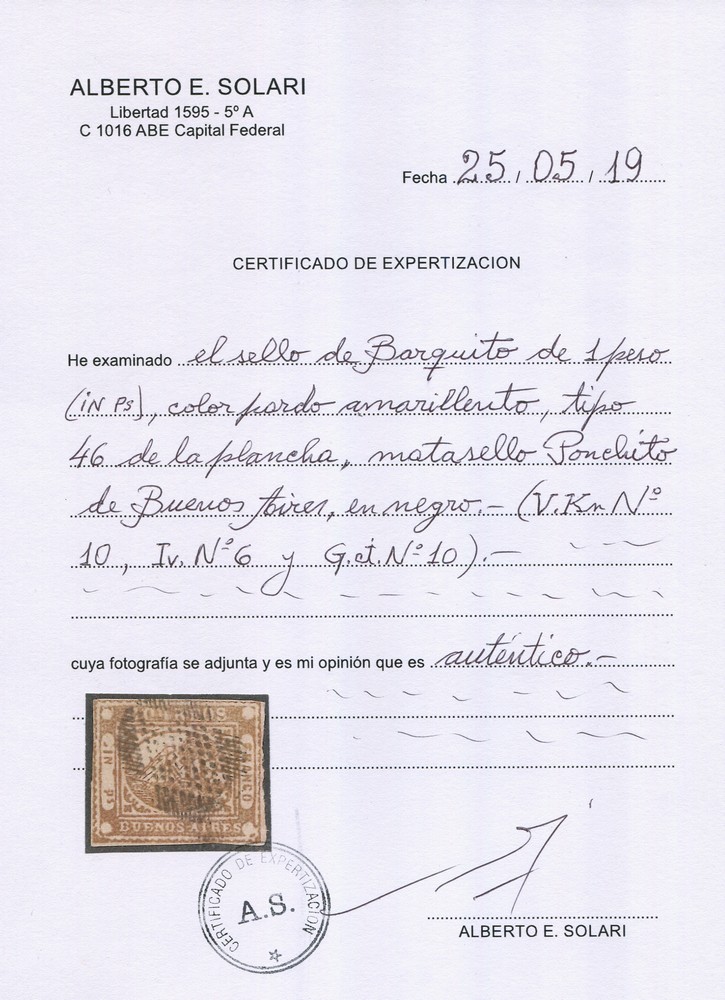 ALBERTO E. SOLARI
Libertad 1595 - 5º A
C 1016 ABE Capital Federal
Fecha 25 / 05 / 19
CERTIFICADO DE EXPERTIZACION
He examinado el sello de Barquito de 1 peso
(IN Ps), color pardo amarillento, tipo
46 de la plancha, matasello Ponchito
de Buenos Aires, en negro.- (V.Kn Nº
10, Iv. Nº 6 y G.et. Nº 10).-
cuya fotografía se adjunta y es mi opinión que es auténtico.-
IN Ps
FRANCO
BUENOS AIRES
CERTIFICADO DE EXPERTIZACIÓN
A.S.
ALBERTO E. SOLARI